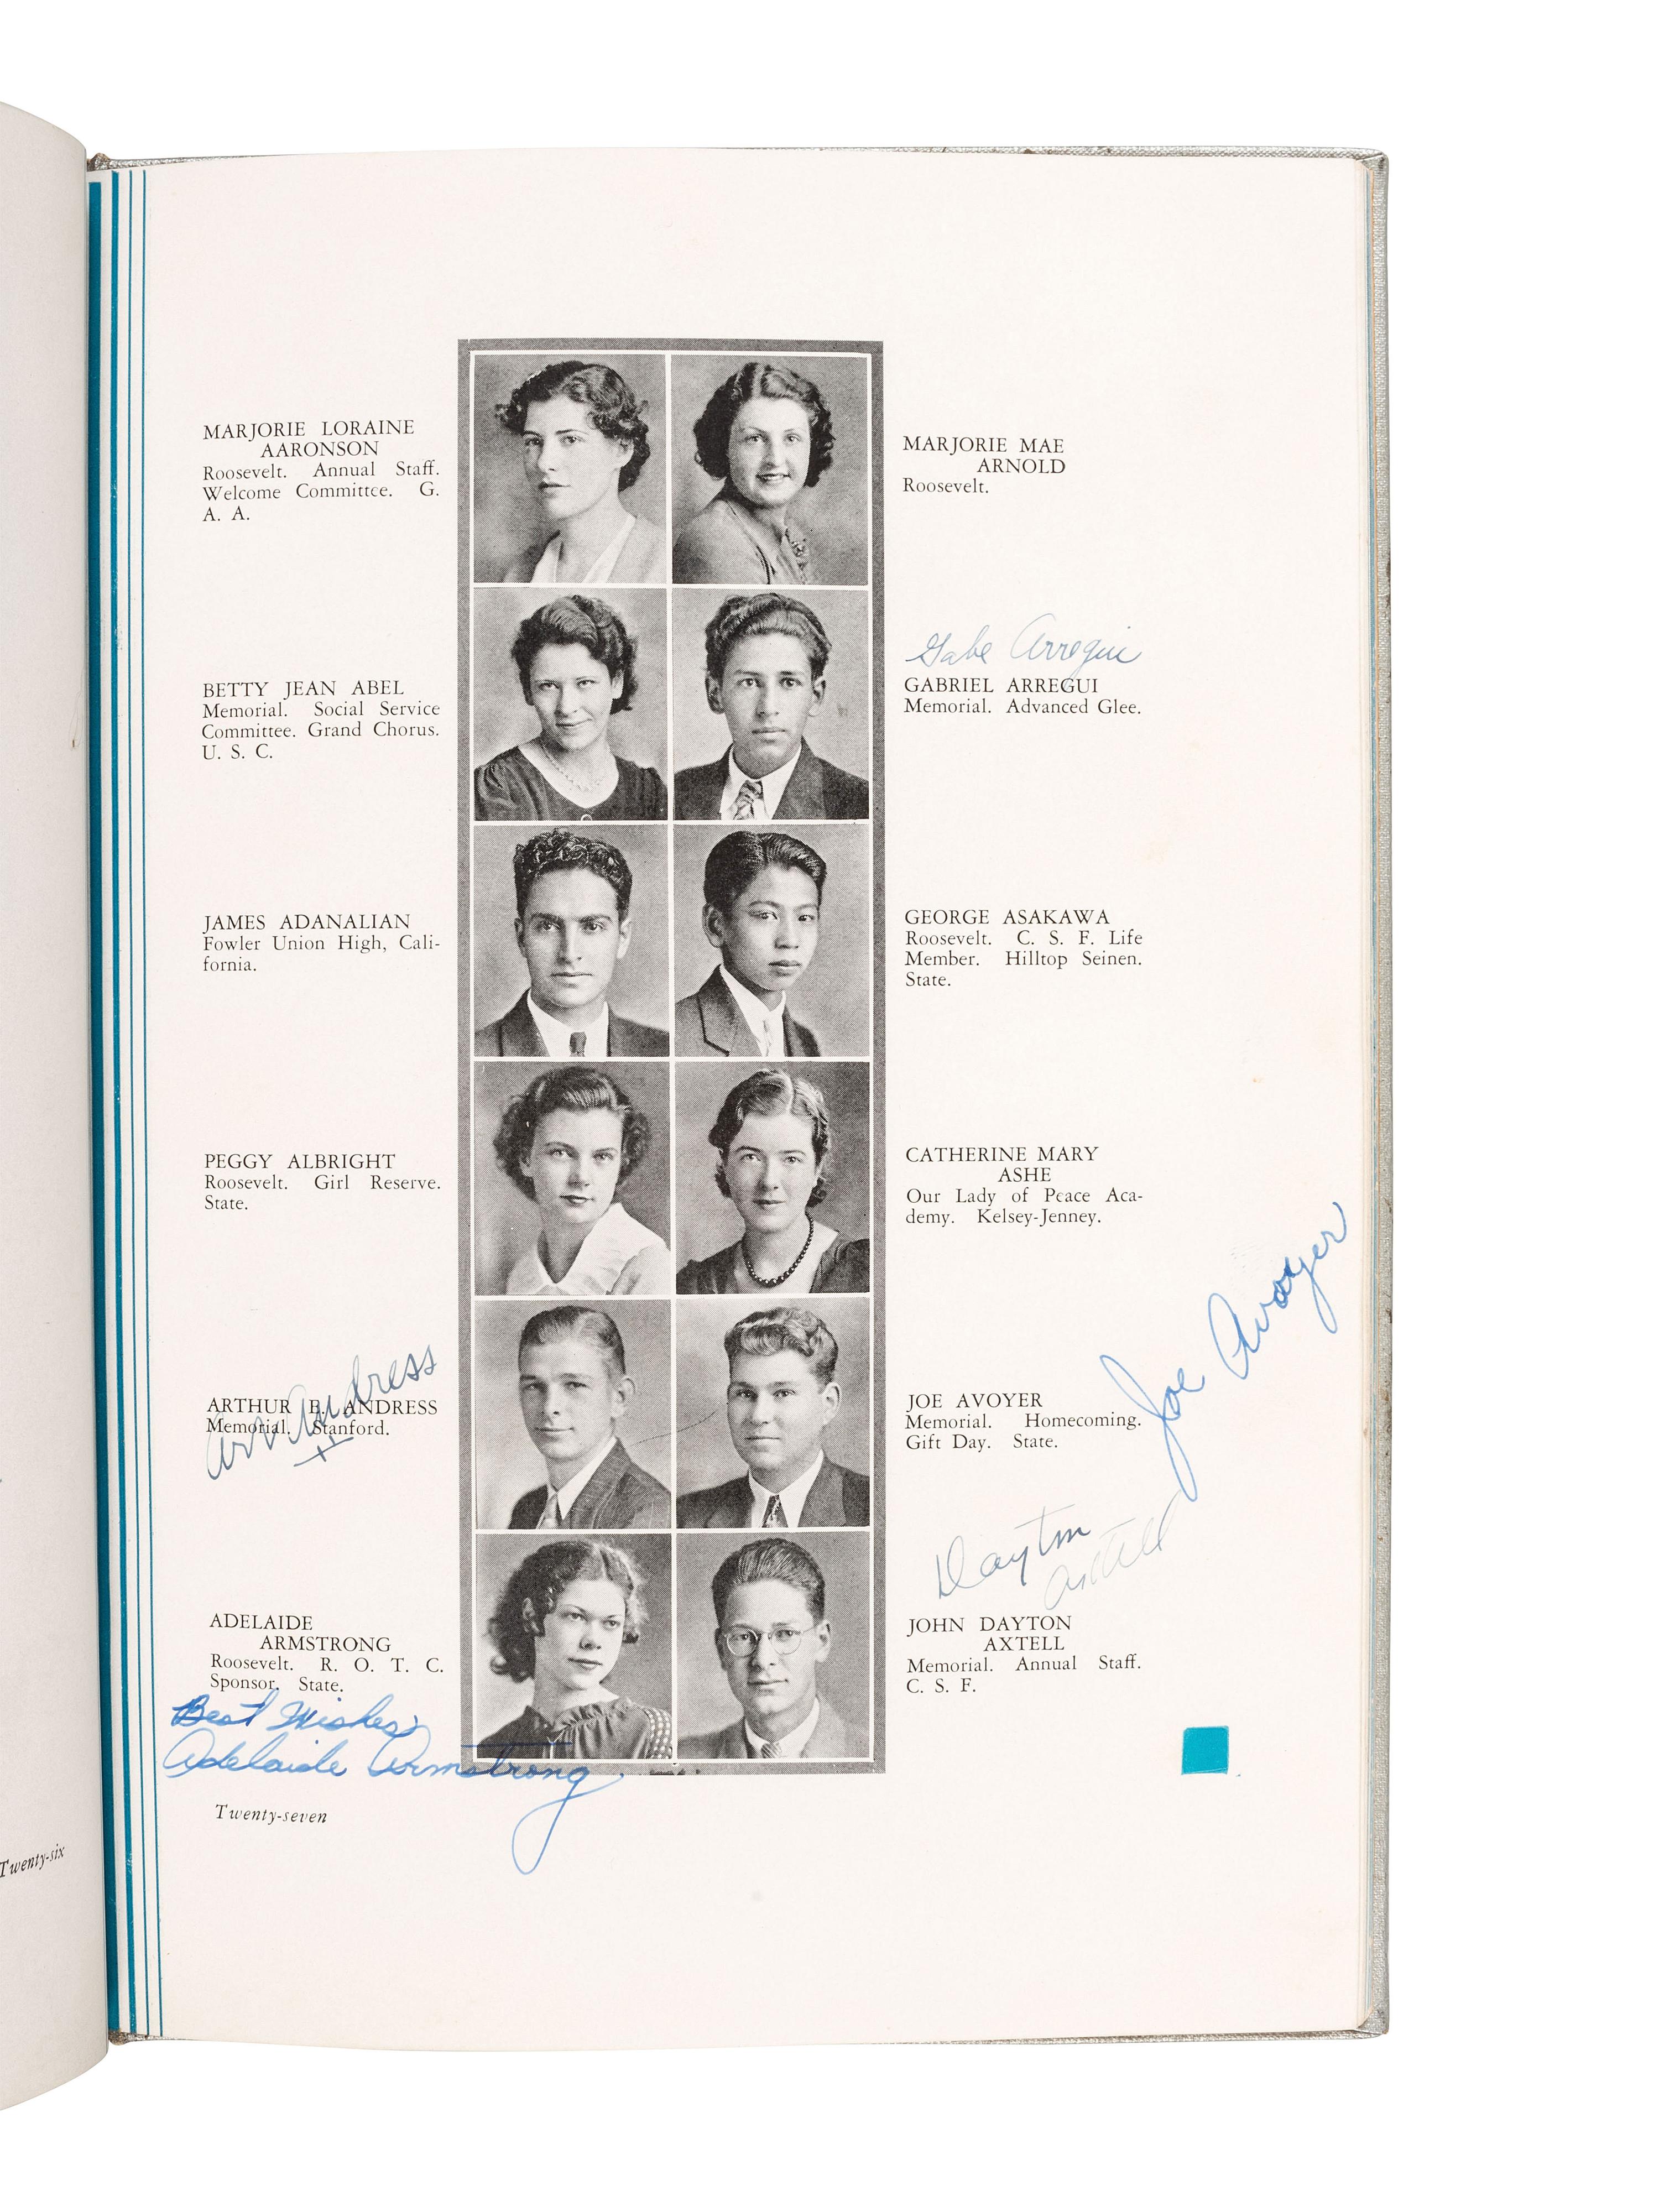 MARJORIE LORAINE
AARONSON
Roosevelt. Annual Staff.
Welcome Committee. G.
A. A.
BETTY JEAN ABEL
Memorial. Social Service
Committee. Grand Chorus.
U. S. C.
JAMES ADANALIAN
Fowler Union High, Cali-
fornia.
PEGGY ALBRIGHT
Roosevelt. Girl Reserve.
State.
Art Andress
ARTHUR E. ANDRESS
Memorial. Stanford.
ADELAIDE
ARMSTRONG
Roosevelt. R. O. T. C.
Sponsor. State.
Best Wishes
Adelaide Armstrong
Twenty-seven
MARJORIE MAE
ARNOLD
Roosevelt.
Gabe Arregui
GABRIEL ARREGUI
Memorial. Advanced Glee.
GEORGE ASAKAWA
Roosevelt. C. S. F. Life
Member. Hilltop Seinen.
State.
CATHERINE MARY
ASHE
Our Lady of Peace Aca-
demy. Kelsey-Jenney.
Joe Avoyer
JOE AVOYER
Memorial. Homecoming.
Gift Day. State.
Dayton
Axtell
JOHN DAYTON
AXTELL
Memorial. Annual Staff.
C. S. F.
Twenty-six